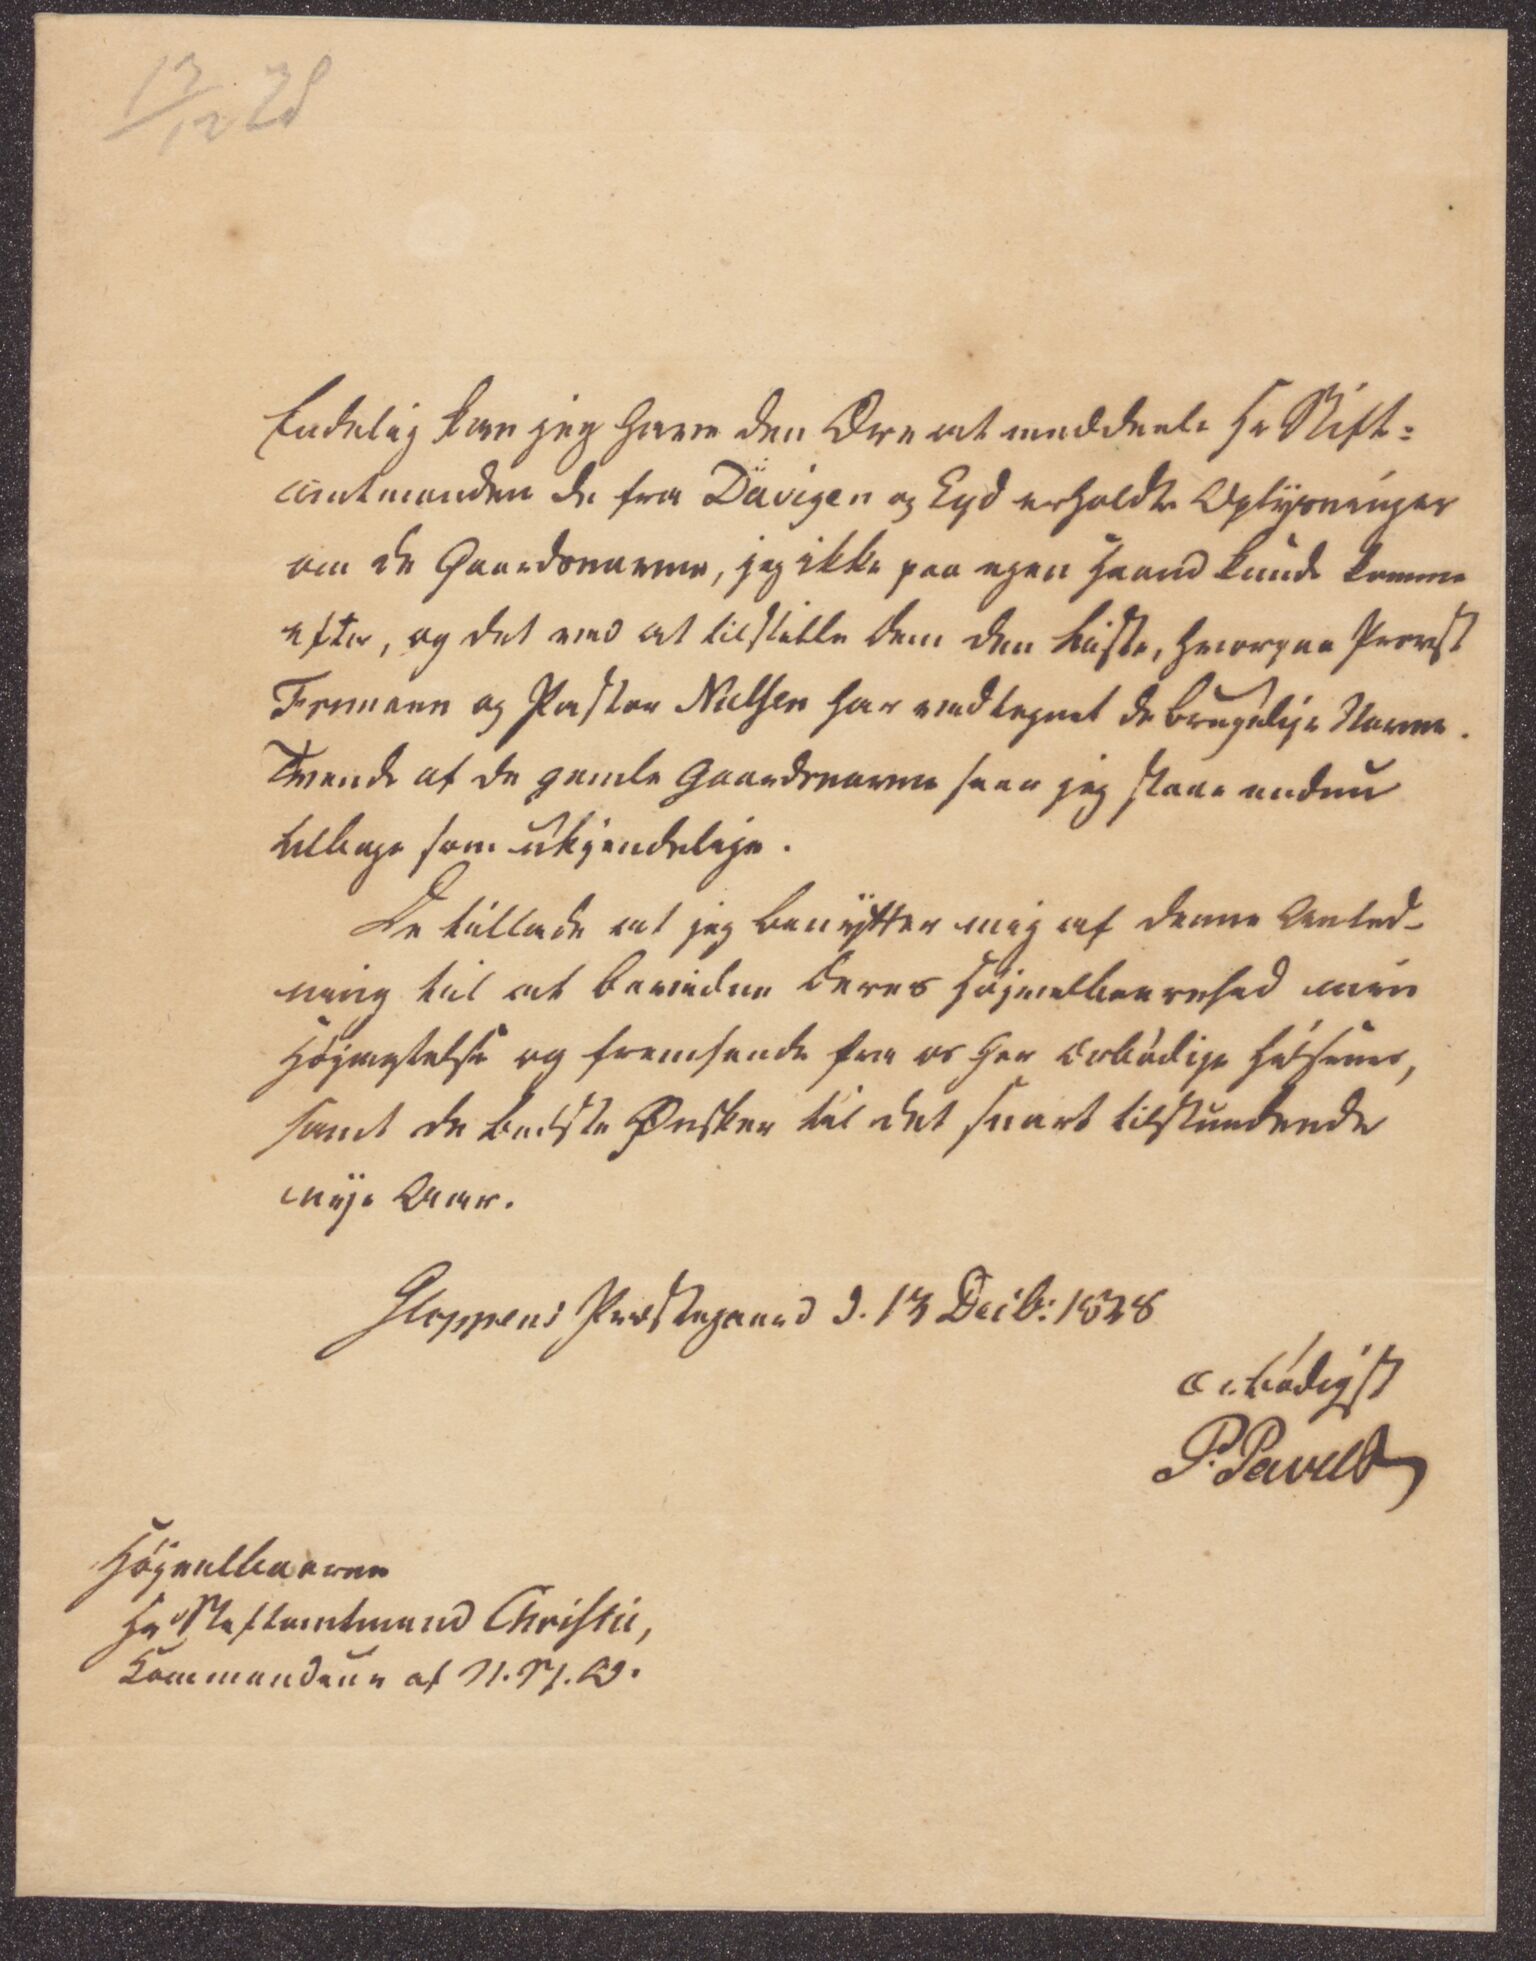 13/12 28
Endelig kan jeg have den Ære at meddeele Hr Stift=
amtmanden de fra Dävigen og Eyd erholdte Oplysninger
om de Gaardsnavne, jeg ikke paa egen Haand kunde komme
efter, og det ved at tilstille Dem den Liste, hvorpaa Provst
Frimann og Pastor Nielsen har vedtegnet de brugelige Navne.
Tvende af de gamle Gaardsnavne seer jeg staae endnu
tilbage som ukjendelige.
De tillade at jeg benytter mig af denne Anled-
ning til at bevidne Deres Højvelbaarenhed min
Højagtelse og fremsende fra os her ærbødige Hilsener,
samt de bedste Ønsker til det snart tilstundende
nye Aar.
Gloppens Præstegaard d. 13 Decb: 1828
ærbødigst
P. Pavels
Højvelbaarne
Hr Stiftamtmand Christie,
Kommandeur af N. St. O.